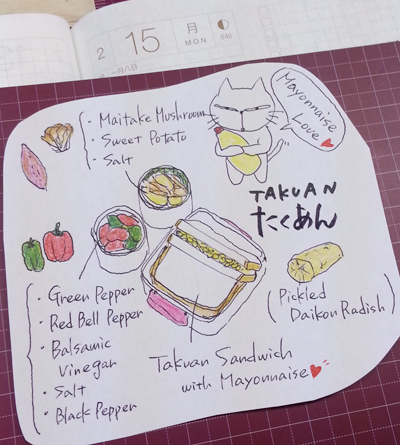 2
15
月
MON
046
・Maitake Mushroom
・Sweet Potato
・Salt
Mayonnaise
Love
TAKUAN
たくあん
・Green Pepper
・Red Bell Pepper
・Balsamic
Vinegar
・Salt
・Black Pepper
(Pickled
Daikon Radish)
Takuan Sandwich
with Mayonnaise